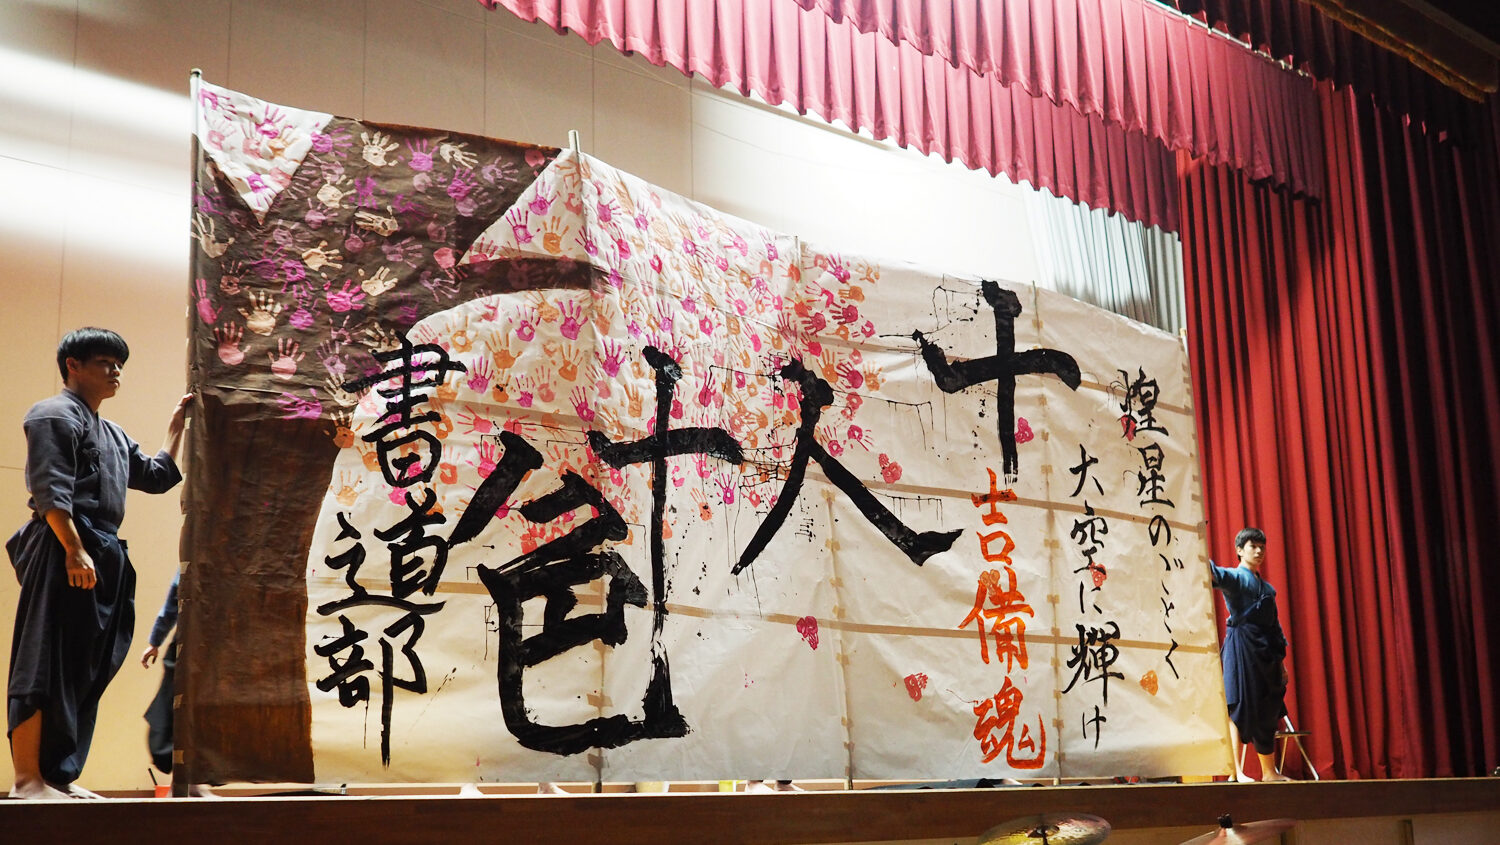 煌星のごとく
大空に輝け
吉備魂
十人十色
書道部